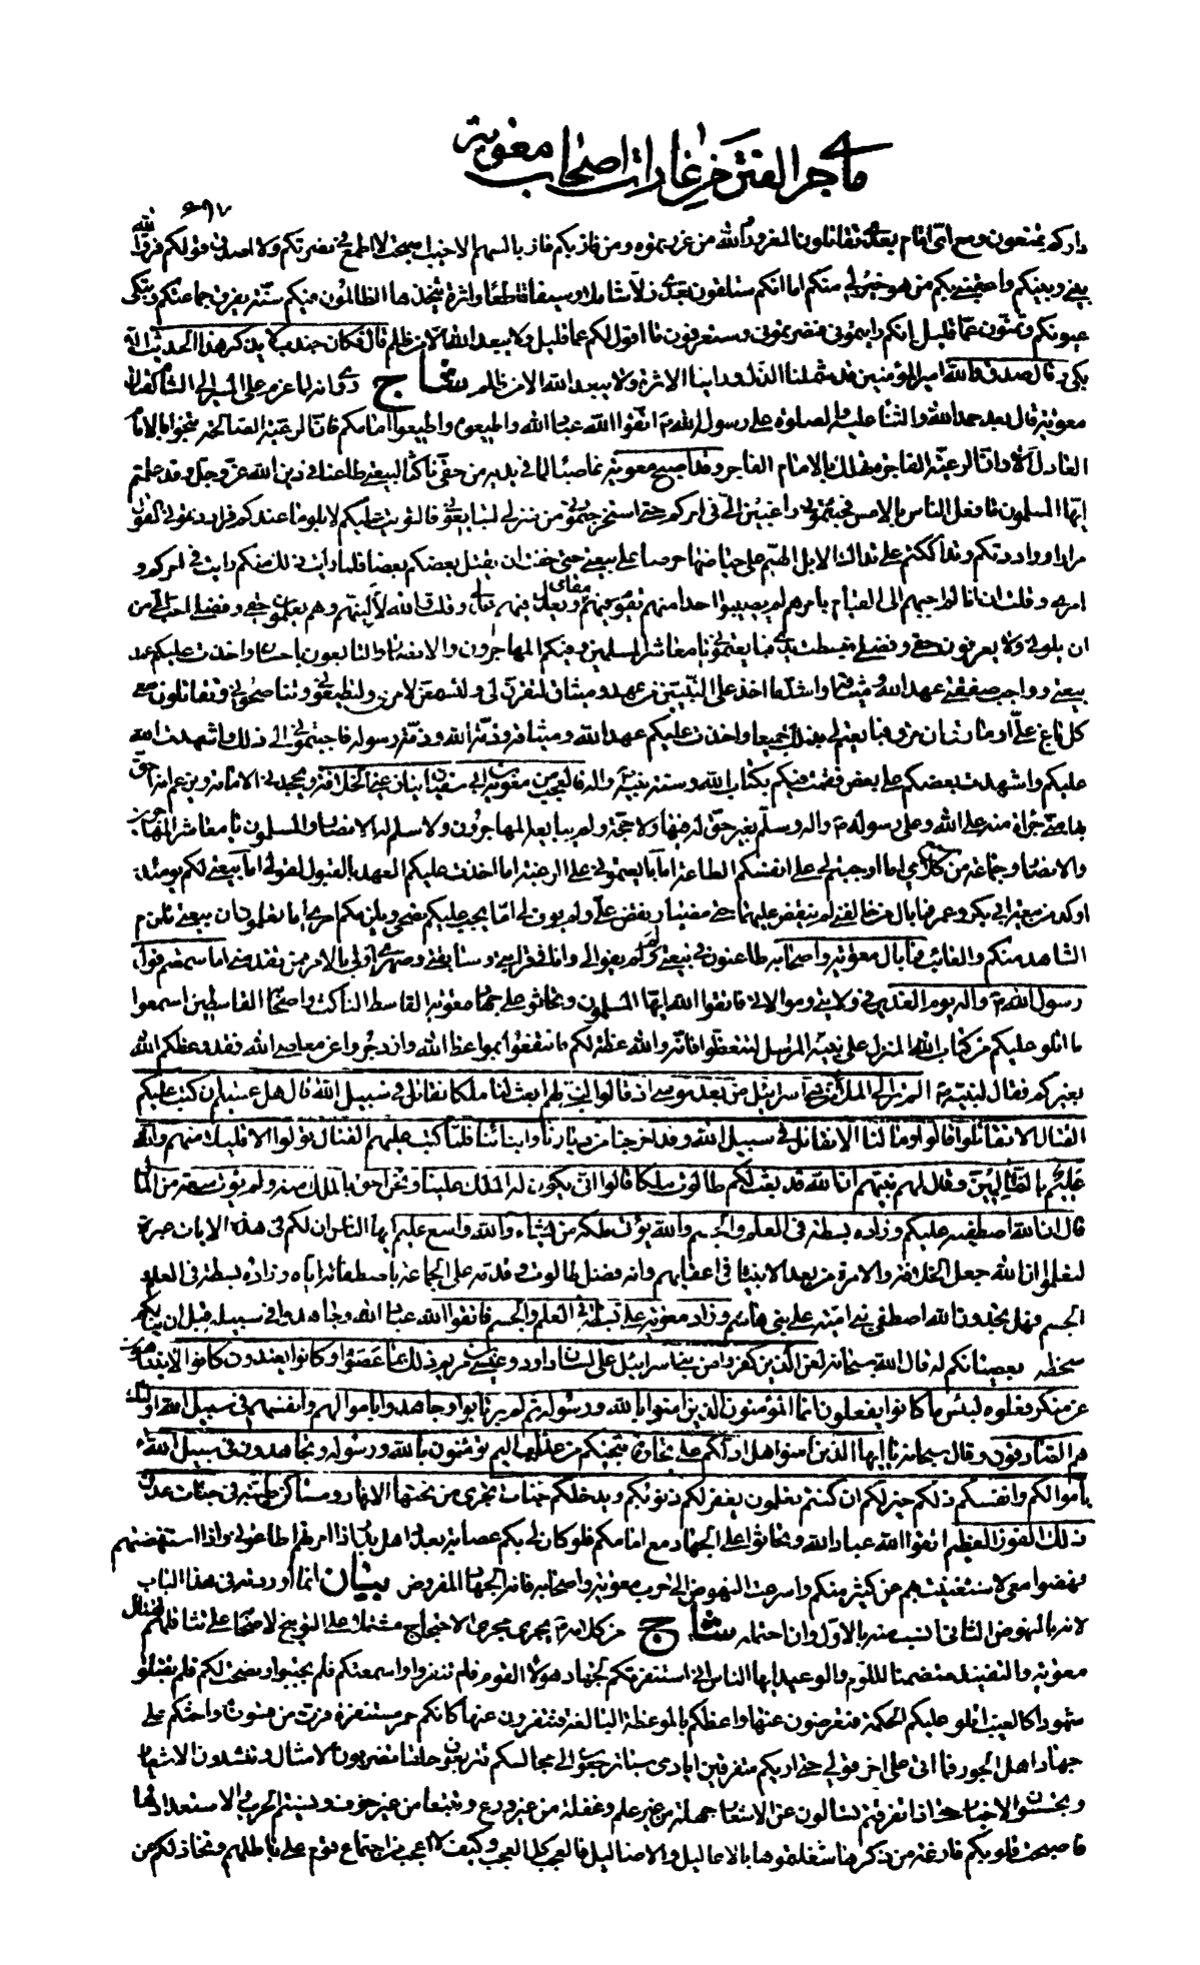 ما جرى من الفتن من غارات اصحاب معوية
٦٩٧
داركم تمنعون ومع اى امام بعدى تقاتلون المغرور والله من غررتموه ومن فاز بكم فاز بالسهم الاخيب اصبحت لا اطمع فى نصرتكم ولا اصدق قولكم فرق الله
بينى وبينكم واعقبنى بكم من هو خير لى منكم اما انكم ستلقون بعدى ذلا شاملا وسيفا قاطعا واثرة يتخذها الظالمون فيكم سنة يفرق جماعتكم ويبكى
عيونكم وتمنون عما قليل انكم رايتمونى فنصرتمونى وستعرفون ما اقول لكم عما قليل ولا يبعد الله الا من ظلم قال فكان جندب لا يذكر هذا الحديث الا
بكى وقال صدق والله امير المؤمنين قد شملنا الذل وراينا الاثرة ولا يبعد الله الا من ظلم شا ج روى انه لما عزم على المسير الى الشام لقتال
معوية قال بعد حمد الله والثناء عليه والصلوة على رسول الله اتقوا الله عباد الله واطيعوه واطيعوا امامكم فان الرعية الصالحة تنجوا بالامام
العادل الا وان الرعية الفاجرة تهلك بالامام الفاجر وقد اصبح معوية غاصبا لما فى يديه من حقى ناكثا لبيعتى طاعنا فى دين الله عز وجل وقد علمتم
ايها المسلمون ما فعل الناس بالامس فجئتمونى راغبين الى فى امركم حتى استخرجتمونى من منزلى لتبايعونى فالتويت عليكم لابلو ما عندكم فراددتمونى القول
مرارا وراددتكم وتداككتم على تداك الابل الهيم على حياضها حرصا على بيعتى حتى خفت ان يقتل بعضكم بعضا فلما رايت ذلك منكم رويت فى امركم و
امرى وقلت ان انا لم اجبهم الى القيام بامرهم لم يصيبوا احدا منهم يقوم فيهم مقامى ويعدل فيهم عدلى وقلت والله لالينهم وهم يعلمون حقى وفضلى احب الى من
ان يلونى ولا يعرفون حقى وفضلى فبسطت يدى فبايعتمونى يا معاشر المسلمين وفيكم المهاجرون والانصار والتابعون باحسان واخذت عليكم عهد
بيعتى وواجب صفقتى عهد الله وميثاقه واشد ما اخذ على النبيين من عهد وميثاق لتفرن لى ولتسمعن لامرى ولتطيعونى وتناصحونى وتقاتلون معى
كل باغ على او مارق ان مرق فبايعتم لى بذلك جميعا واخذت عليكم عهد الله وميثاقه وذمة الله وذمة رسوله فاجبتمونى الى ذلك واشهدت الله
عليكم واشهدت بعضكم على بعض فقمت فيكم بكتاب الله وسنة نبيه واله فالعجب من معوية بن ابى سفيان ينازعنى الخلافة ويجحدنى الامامة ويزعم انه احق
بها منى جراة منه على الله وعلى رسوله واله وسلم بغير حق له فيها ولا حجة ولم يبايعه المهاجرون ولا سلم له الانصار والمسلمون يا معاشر المهاجرين
والانصار وجماعة من سمع كلامى اما اوجبتم لى على انفسكم الطاعة اما بايعتمونى على الرغبة اما اخذت عليكم العهد بالقبول لقولى اما بيعتى لكم يومئذ
اوكد من بيعة ابى بكر وعمر فما بال من خالفنى لم ينقض عليهما حتى مضيا ونقض على ولم يوف لى اما يجب عليكم نصحى ويلزمكم امرى اما تعلمون ان بيعتى تلزم
الشاهد منكم والغائب فما بال معوية واصحابه طاعنون فى بيعتى ولم لم يفوا لى وانا فى قرابتى وسابقتى وصهرى اولى بالامر ممن تقدمنى اما سمعتم قول
رسول الله واله يوم الغدير فى ولايتى وموالاتى فاتقوا الله ايها المسلمون وتحاثوا على جهاد معوية القاسط الناكث واصحابه القاسطين اسمعوا
ما اتلو عليكم من كتاب الله المنزل على نبيه المرسل لتتعظوا فانه والله عظة لكم فانتفعوا بمواعظ الله وازدجروا عن معاصى الله فقد وعظكم الله
بغيركم فقال لنبيه الم تر الى الملا من بنى اسرائيل من بعد موسى اذ قالوا لنبى لهم ابعث لنا ملكا نقاتل فى سبيل الله قال هل عسيتم ان كتب عليكم
القتال الا تقاتلوا قالوا وما لنا الا نقاتل فى سبيل الله وقد اخرجنا من ديارنا وابنائنا فلما كتب عليهم القتال تولوا الا قليلا منهم والله
عليم بالظالمين وقال لهم نبيهم ان الله قد بعث لكم طالوت ملكا قالوا انى يكون له الملك علينا ونحن احق بالملك منه ولم يؤت سعة من المال
قال ان الله اصطفيه عليكم وزاده بسطة فى العلم والجسم والله يؤتى ملكه من يشاء والله واسع عليم ايها الناس ان لكم فى هذه الايات عبرة
لتعلموا ان الله جعل الخلافة والامرة من بعد الانبياء فى اعقابهم وانه فضل طالوت وقدمه على الجماعة باصطفائه اياه وزاده بسطة فى العلم و
الجسم فهل تجدون الله اصطفى بنى امية على بنى هاشم وزاد معوية على بسطة فى العلم والجسم فاتقوا الله عباد الله وجاهدوا فى سبيله قبل ان ينالكم
سخطه بعصيانكم له قال الله سبحانه لعن الذين كفروا من بنى اسرائيل على لسان داود وعيسى بن مريم ذلك بما عصوا وكانوا يعتدون كانوا لا يتناهون
عن منكر فعلوه لبئس ما كانوا يفعلون انما المؤمنون الذين امنوا بالله ورسوله ثم لم يرتابوا وجاهدوا باموالهم وانفسهم فى سبيل الله اولئك
هم الصادقون وقال سبحانه يا ايها الذين امنوا هل ادلكم على تجارة تنجيكم من عذاب اليم تؤمنون بالله ورسوله وتجاهدون فى سبيل الله
باموالكم وانفسكم ذلكم خير لكم ان كنتم تعلمون يغفر لكم ذنوبكم ويدخلكم جنات تجرى من تحتها الانهار ومساكن طيبة فى جنات عدن
ذلك الفوز العظيم اتقوا الله عباد الله وتحاثوا على الجهاد مع امامكم فلو كان لى بكم عصابة بعدد اهل بدر اذا امرتهم اطاعونى واذا استنهضتهم
نهضوا معى لاستغنيت بهم عن كثير منكم واسرعت النهوض الى حرب معوية واصحابه فانه الجهاد المفروض بيان انما اوردته فى هذا الباب
لانه بالنهوض الثانى انسب منه بالاول وان احتمله شا ج من كلامه يجرى مجرى الاحتجاج مشتملا على التوبيخ لاصحابه على تثاقلهم لقتال
معوية والتفنيد متضمنا للوم والوعيد ايها الناس انى استنفرتكم لجهاد هؤلاء القوم فلم تنفروا واسمعتكم فلم تجيبوا ونصحت لكم فلم تقبلوا
شهودا كالغيب اتلو عليكم الحكمة فتعرضون عنها واعظكم بالموعظة البالغة فتتفرون عنها كانكم حمر مستنفرة فرت من قسورة واحثكم على
جهاد اهل الجور فما اتى على اخر قولى حتى اريكم متفرقين ايادى سبا ترجعون الى مجالسكم تتربعون حلقا تضربون الامثال وتنشدون الاشعار
وتجسسون الاخبار حتى اذا تفرقتم تسالون عن الاشعار جهلة من غير علم وغفلة من غير ورع وتتبعا من غير خوف ونسيتم الحرب والاستعداد لها
فاصبحت قلوبكم فارغة من ذكرها شغلتموها بالاعاليل والاضاليل فالعجب كل العجب وكيف لا اعجب من اجتماع قوم على باطلهم وتخاذلكم عن